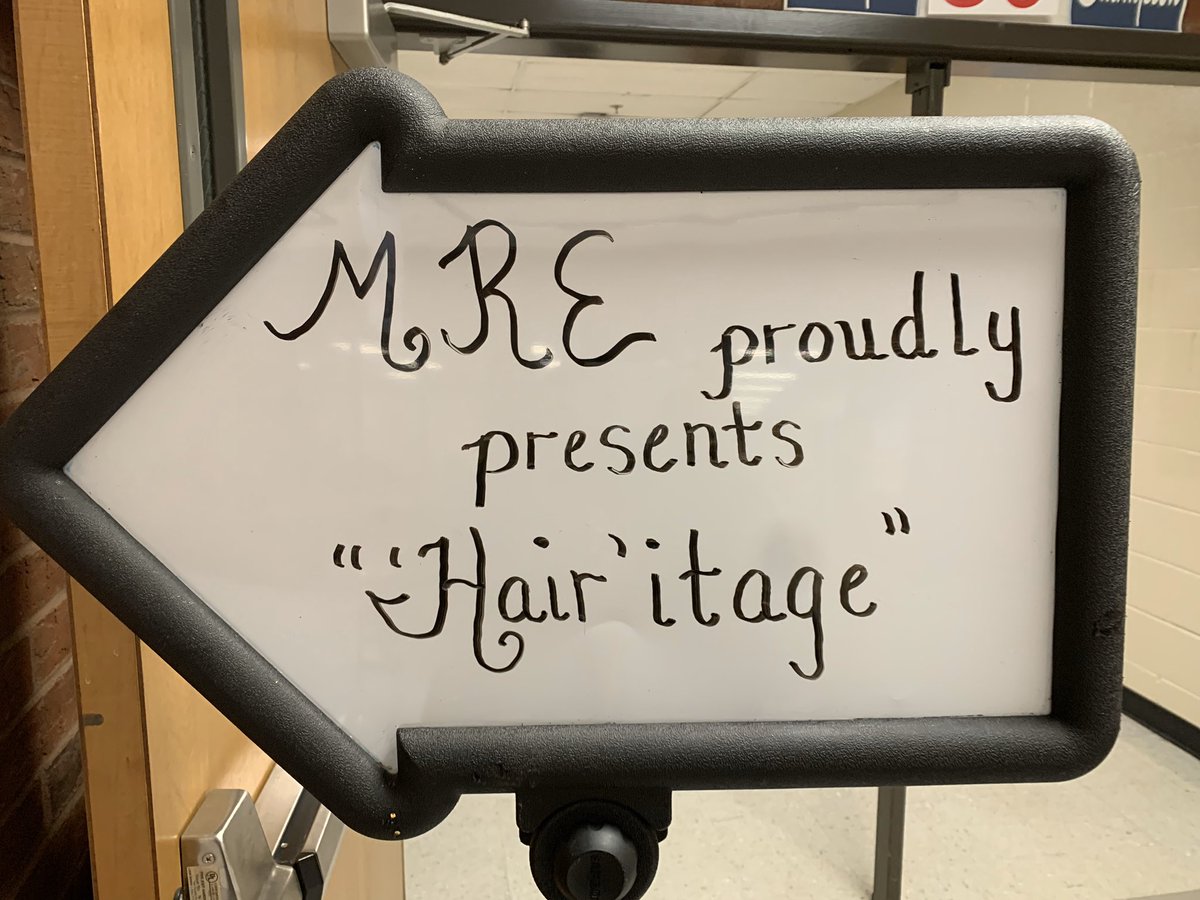 MRE proudly
presents
"Hair'itage"